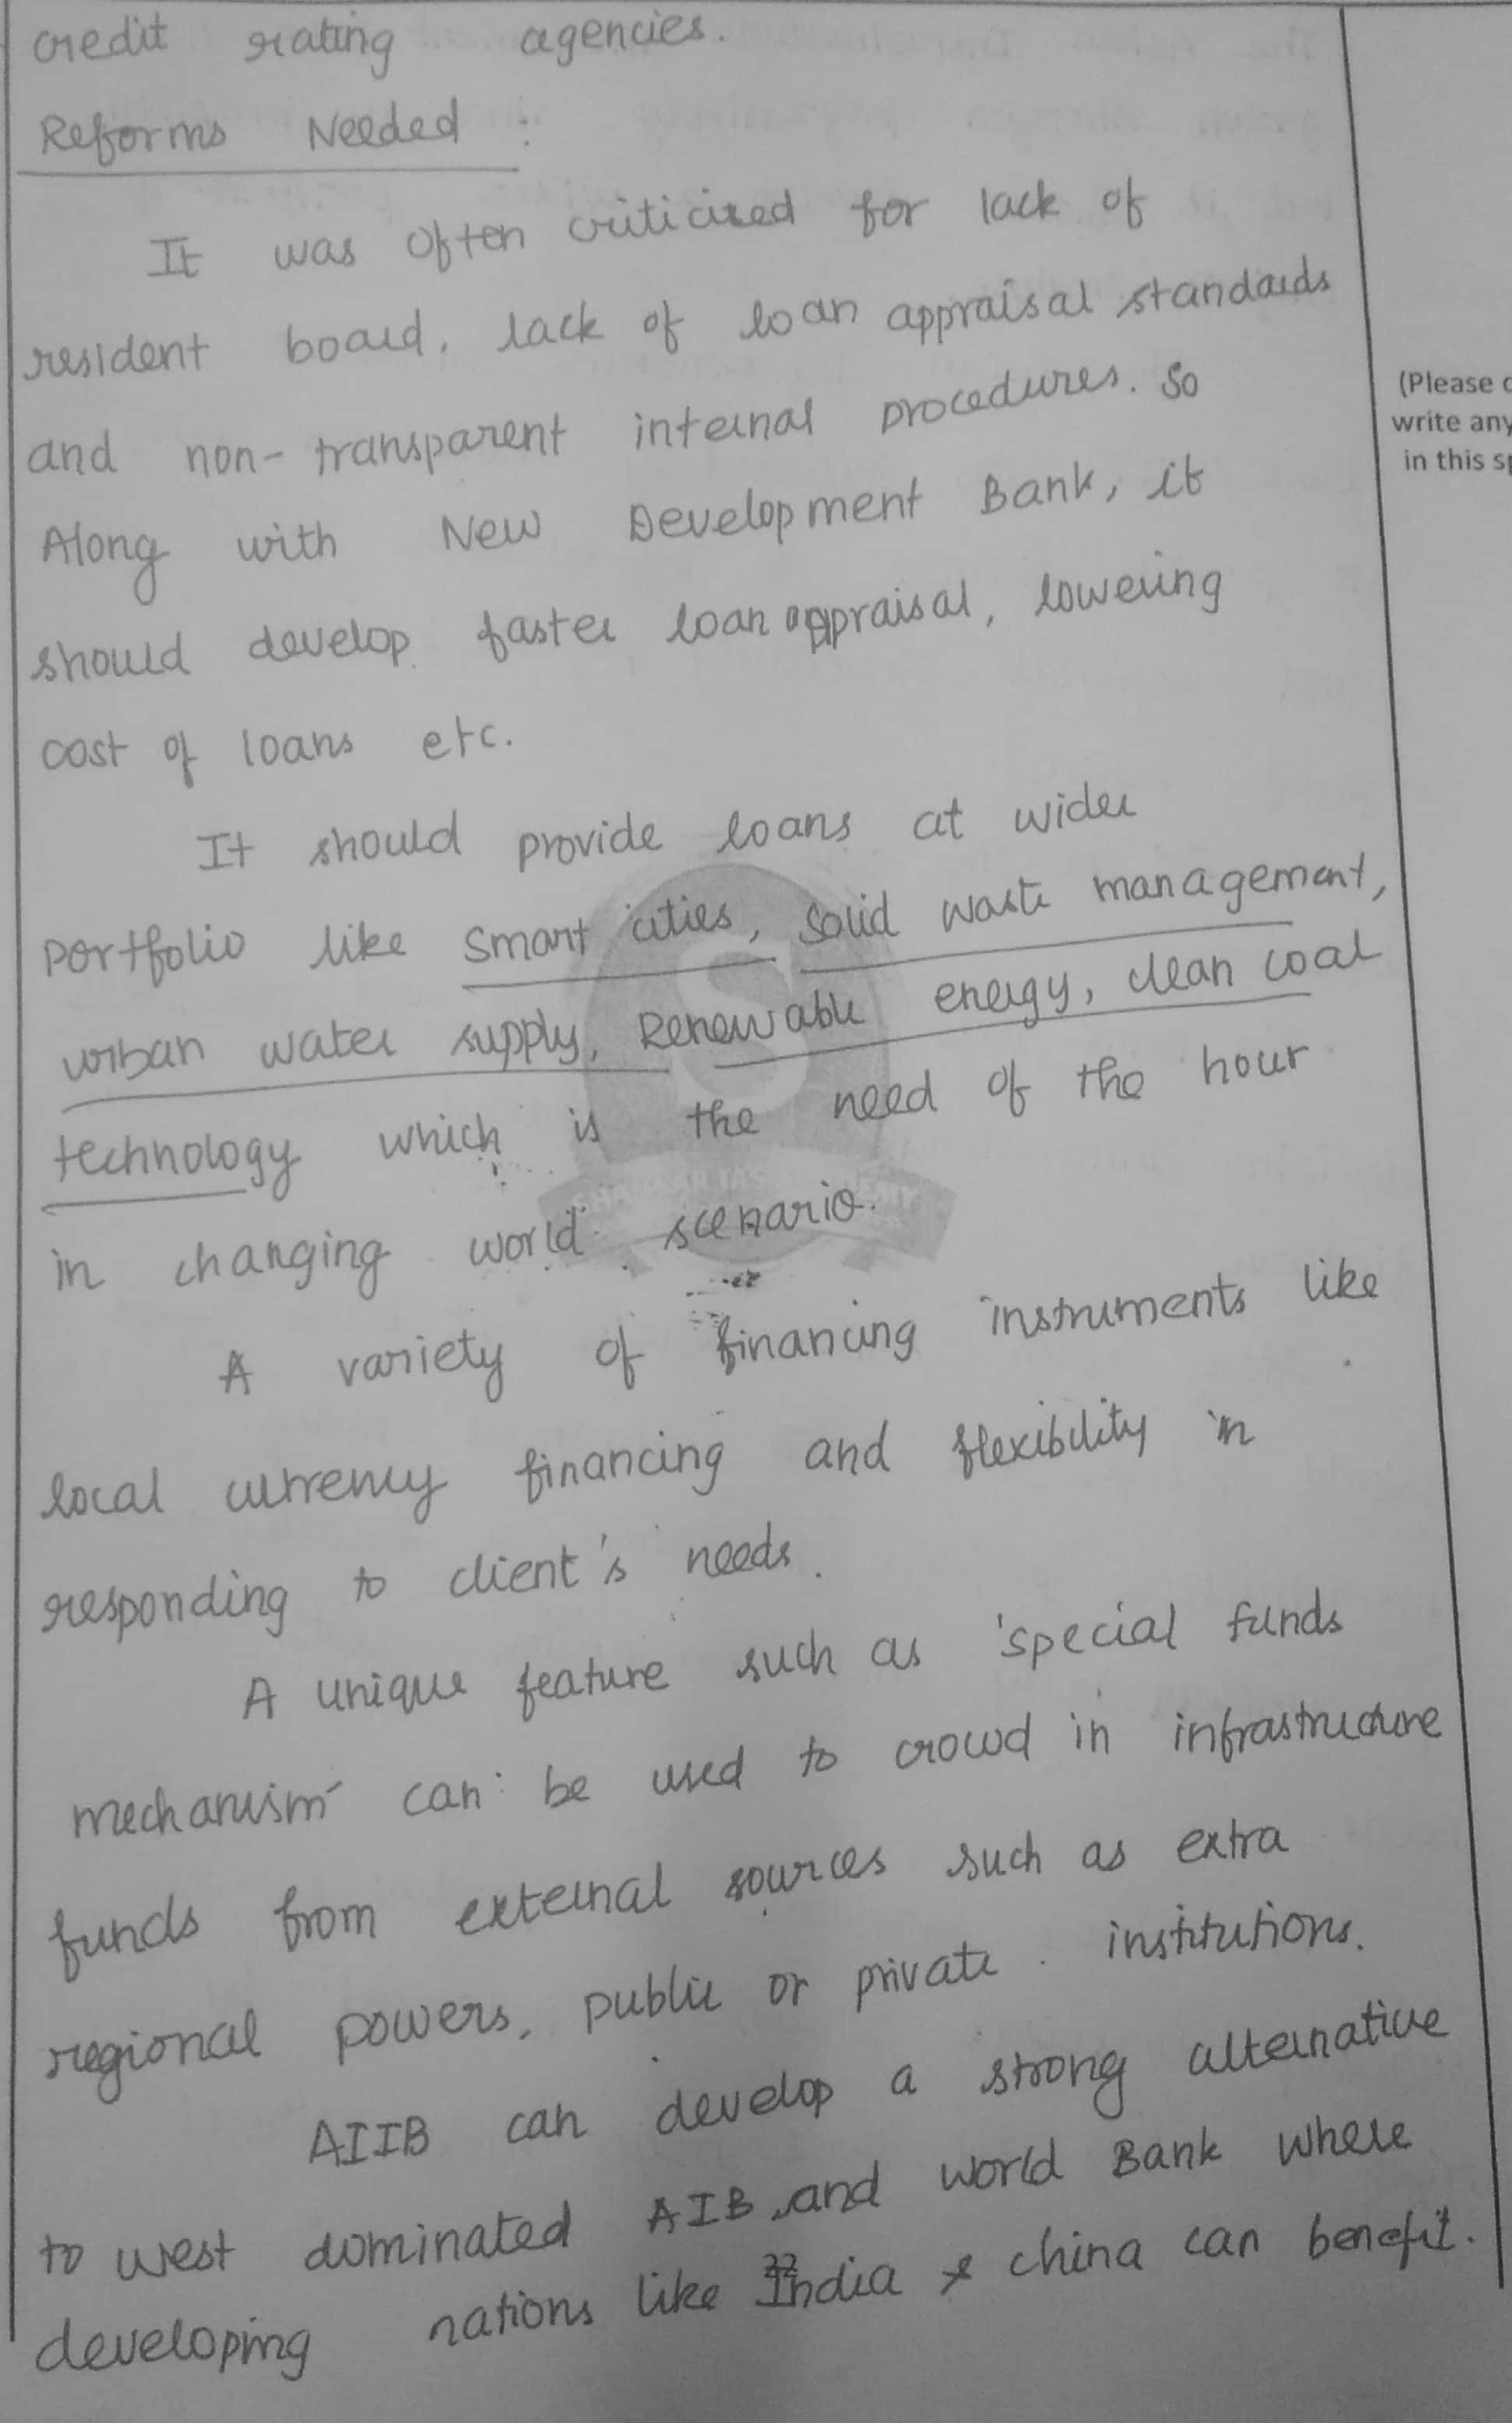 credit rating agencies.
Reforms Needed :
It was often criticized for lack of
resident board, lack of loan appraisal standards
and non-transparent internal procedures. So
Along with New Development Bank, it
should develop faster loan appraisal, lowering
cost of loans etc.
It should provide loans at wider
portfolio like smart cities, solid waste management,
urban water supply, Renewable energy, clean coal
technology which is the need of the hour
in changing world scenario.
A variety of financing instruments like
local currency financing and flexibility in
responding to client's needs.
A unique feature such as 'special funds
mechanism' can be used to crowd in infrastructure
funds from external sources such as extra
regional powers, public or private institutions.
AIIB can develop a strong alternative
to west dominated AIB and world Bank where
developing nations like India & china can benefit.
22
(Please
write any
in this
SHANKAR IAS ACADEMY